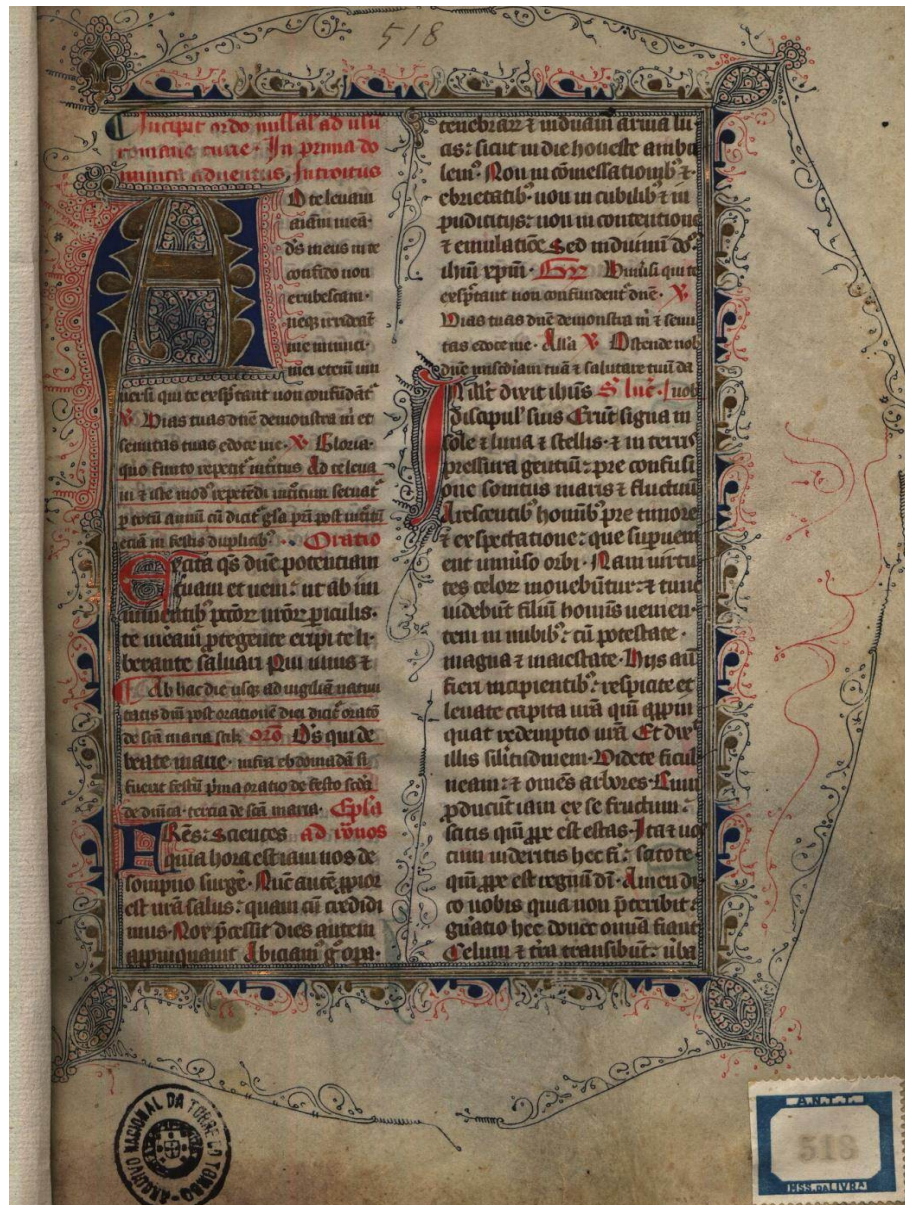 518
Incipit ordo missal' ad usū
romane curie. In prima do
minica aduentus, Introitus
AD te leuaui
aīam meā.
dš meus in te
confido non
erubescam.
neqꝫ irrideāt
me inimici.
mei etenī uni
uersi qui te exspectant non confūdātʳ
℣. Vias tuas dñe demonstra m̄ et
semitas tuas edoce me. ℣. Gloria.
quo finito repetitʳ introitus Ad te leua
ui ⁊ iste modꝰ repetēdi introitum seruatʳ
p totū annū cū dicitʳ gl̄a pr̄i post introitū
etiā in festis duplicibꝰ. Oratio
Excita qs dñe potentiam
tuam et ueni: ut ab im
minentibꝰ pctōꝝ nr̄oꝝ piculis.
te meamᵘʳ ptegente eripi te li
berante saluari Qui uiuis ⁊
Ab hac die usqꝫ ad uigiliā natiui
tatis dñi post orationē diei dicitʳ oratō
de scā maria scilꝫ orō Dš qui de
beate marie. infra ebdomadā si
fuerit festū pima oratio de festo scđa
de dñica. tercia de scā maria. Epl̄a
FRēs: Scientes ad rōnos
quia hora est iam nos de
sompno surgē. Nūc autē ppior
est nrā salus: quam cū credidi
mus. Nox pcessit dies autem
appinquauit Abiciamꝰ g̊ opa.
tenebrarꝝ ⁊ induamꝰ arma lu
cis: sicut in die honeste ambu
lemꝰ. Non in cōmessationibꝰ ⁊
ebrietatibꝰ. non in cubilibꝰ ⁊ in
pudicitijs: non in contentione
⁊ emulatiōe Sed induimini dñ3
ihm̄ xp̄m. Gr̄. Uniūsi qui te
exspectant non confundentʳ dñe. ℣.
Vias tuas dñe demonstra m̄ ⁊ semi
tas edoce me. Allā ℣. Ostende nob
dñe misc̄diam tuā ⁊ salutare tuū da
In ill̄t dixit ihūs S. luc̄. nob
discipul' suis Erūt signa in
sole ⁊ luna ⁊ stellis. ⁊ in terris
pressura gentiū: pre confusi
one sonitus maris ⁊ fluctuū
Arescentibꝰ hominibꝰ pre timore
⁊ exspectatione: que supueni
ent uniūso orbi. Nam uirtu
tes celoꝝ mouebūtur: ⁊ tunc
uidebūt filiū hominis uenien
tem in nubibꝰ: cū potestate.
magna ⁊ maiestate. Hijs aūt
fieri incipientibꝰ. respicite et
leuate capita urā qm̄ appin
quat redemptio urā Et dix̄
illis silitudinem. Videte ficul
neam: ⁊ omēs arbores. Cum
pducūt iam ex se fructum:
scitis qm̄ ppe est estas. Ita ⁊ uos
cum uideritis hec fīˑ scitote.
qm̄ ppe est regnū dī. Amen di
co uobis quia non pteribit.
gn̄atio hec donec omīa fiant
Celum ⁊ tr̄a transibūt: uba
ARQUIVO NACIONAL DA TORRE DO TOMBO
A.N.T.T.
518
MSS. DA LIVRA